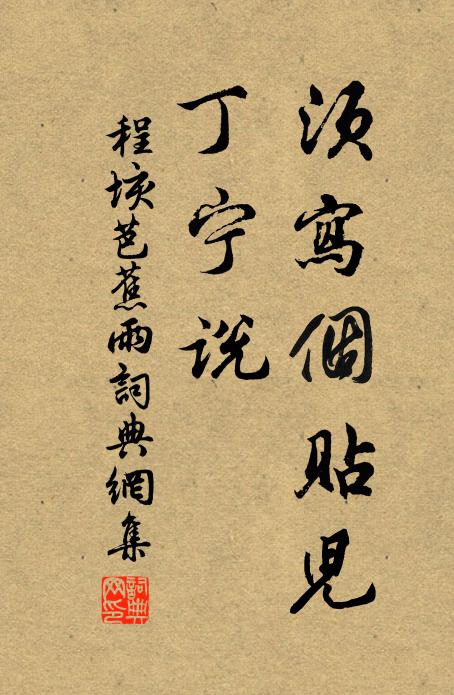 須寫個貼兒
丁宁说
程垓芭蕉雨詞典網集
詞典网印